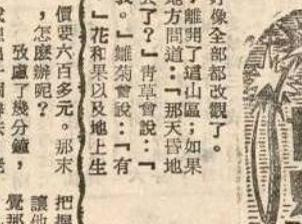 好像全部都改觀了。
離開了這山區；如果
地方問道：「那天昏地
去了？」青草會說：「
我。」雛菊會說：「有
」花和果以及地上生
價要六百多元。那末
，怎麼辦呢？
攷慮了幾分鐘，
把握
讓他
覺那